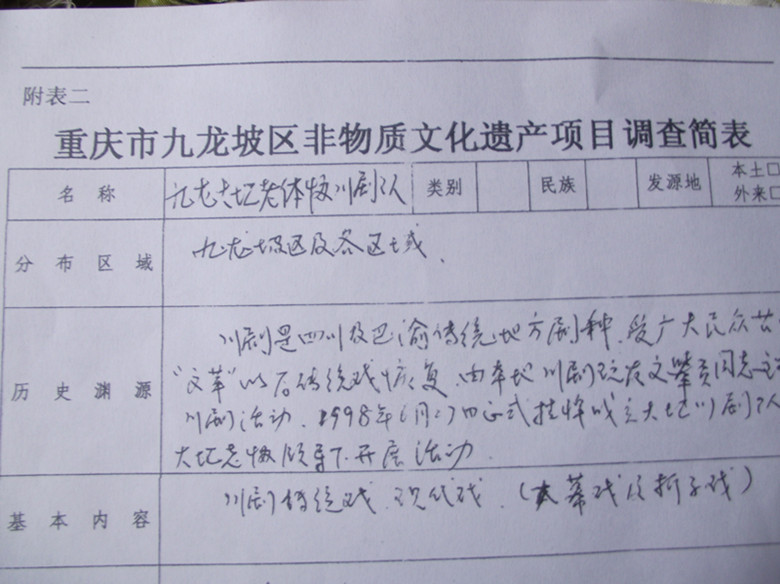 附表二
重庆市九龙坡区非物质文化遗产项目调查简表
名称 九龙大圪老体协川剧队 类别 民族 发源地 本土□
外来□
分布区域 九龙坡区及各区域.
川剧是四川及巴渝传统地方剧种.受广大民众
历史渊源 "文革"以后传统戏恢复.由本地川剧玩友文 同志
川剧活动.1998年 月 正式挂牌成立大圪川剧队
大圪老协领导下开展活动.
基本内容 川剧传统戏.现代戏.(大幕戏及折子戏)